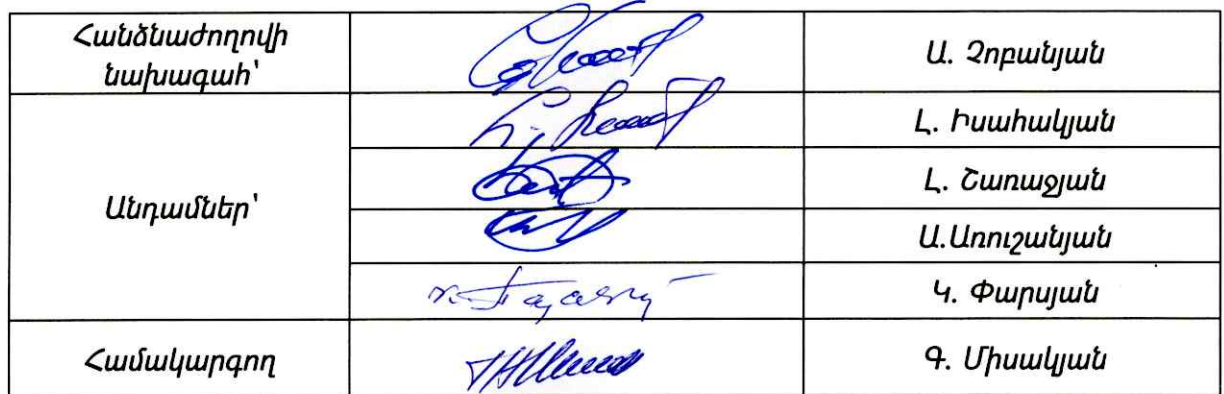 Հանձնաժողովի
նախագահ՝
Ա. Չոբանյան
Անդամներ՝
Լ. Իսահակյան
Լ. Շառաջյան
Ա.Առուշանյան
Կ. Փարսյան
Համակարգող
Գ. Միսակյան